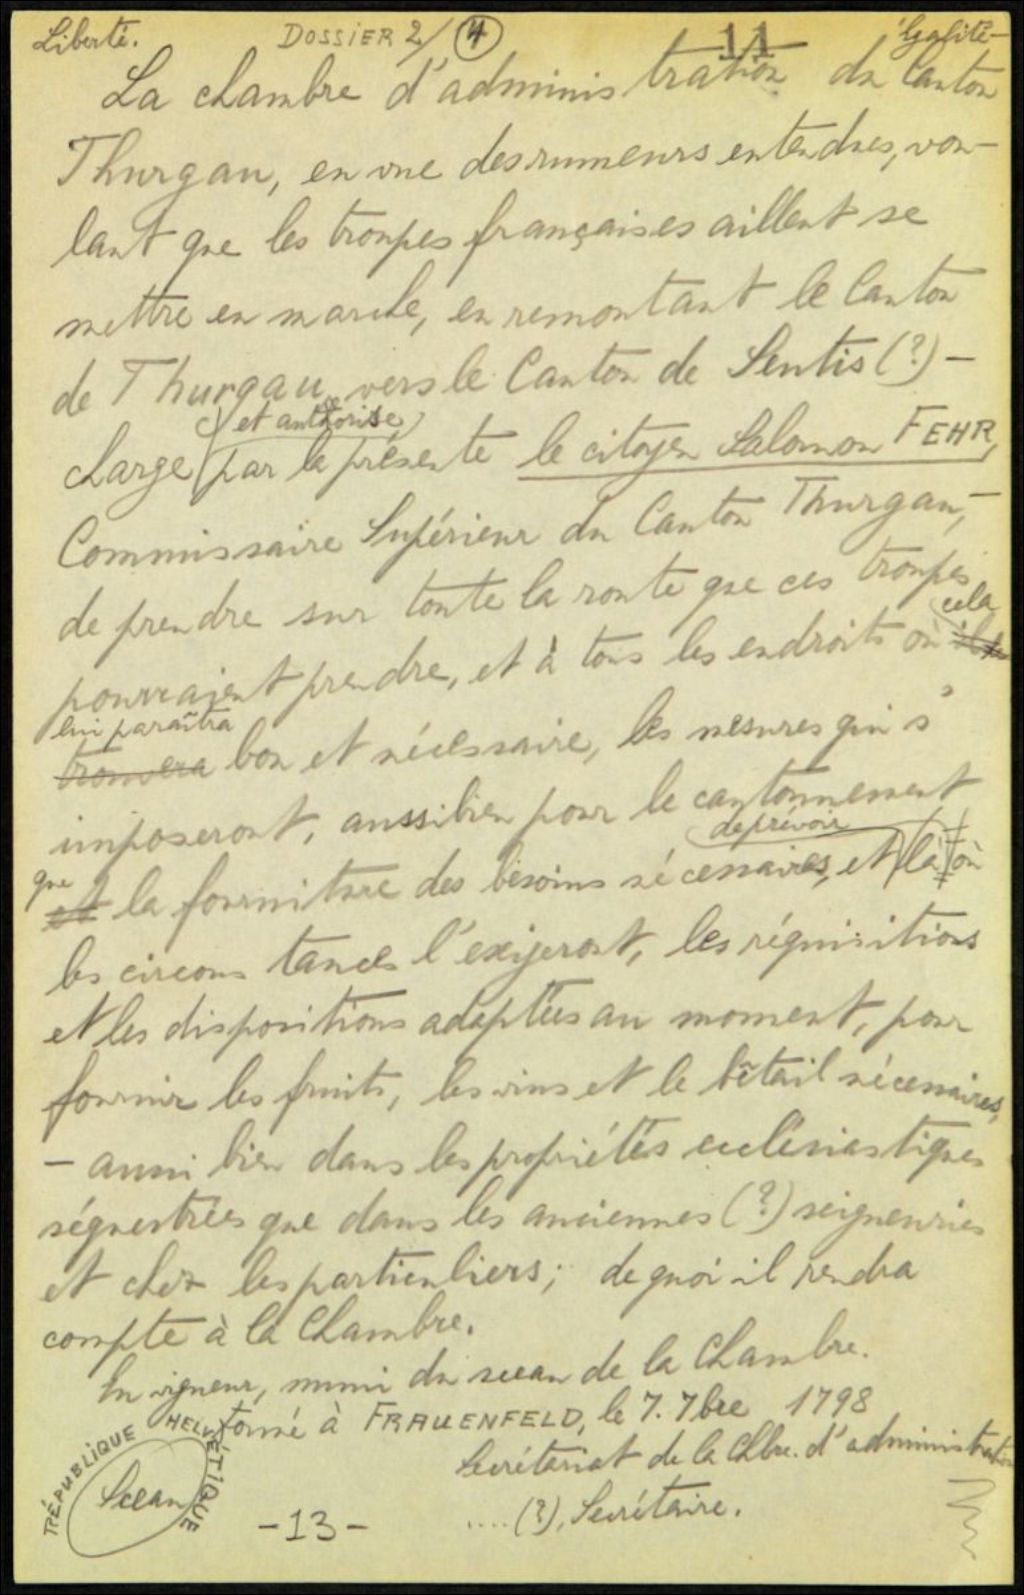 Liberté. DOSSIER 2/ 4 11 Egalité-
La chambre d'administration du Canton
Thurgau, en vue des rumeurs entendues, vou-
lant que les troupes françaises aillent se
mettre en marche, en remontant le Canton
de Thurgau vers le Canton de Sentis (?) -
et authorise
charge par la présente le citoyen Salomon FEHR,
Commissaire Supérieur du Canton Thurgau,-
de prendre sur toute la route que ces troupes
cela
pourraient prendre, et à tous les endroits où
lui paraîtra
trouvera bon et nécessaire, les mesures qui s'
imposeront, aussi bien pour le cantonnement
de prévoir
que et la fourniture des besoins nécessaires, et là où
les circonstances l'exigeront, les réquisitions
et les dispositions adaptées au moment, pour
fournir les fruits, les vins et le bétail nécessaires,
- aussi bien dans les propriétés ecclésiastiques
séquestrées que dans les anciennes (?) seigneuries
et chez les particuliers; de quoi il rendra
compte à la Chambre.
En vigueur, muni du sceau de la Chambre.
donné à FRAUENFELD, le 7. 7bre 1798
Secrétariat de la Chbre. d'administration
.... (?), Secrétaire.
RÉPUBLIQUE HELVÉTIQUE
Sceau
-13-